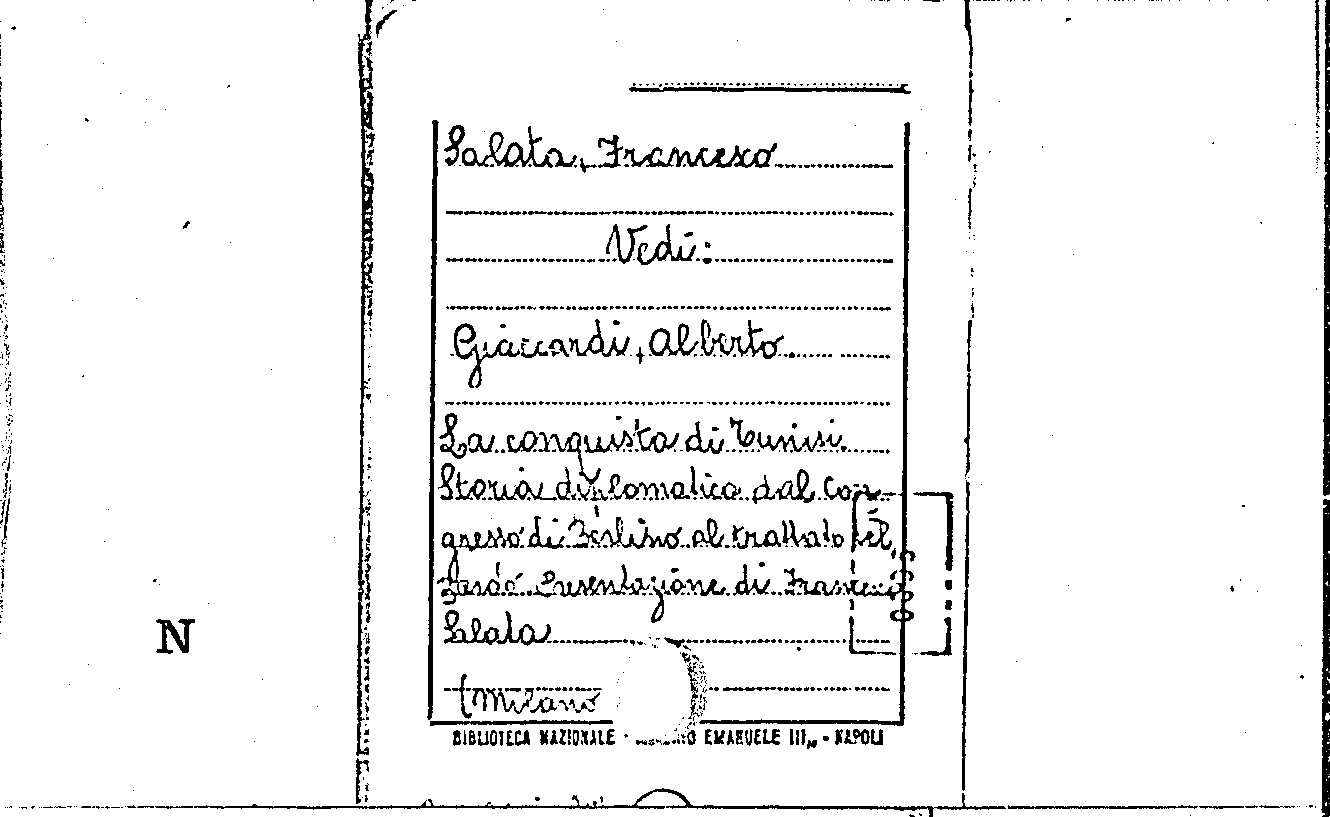 Salata, Francesco
Vedi:
Giaccardi, Alberto.
La conquista di Tunisi.
Storia diplomatica dal Con-
gresso di Berlino al trattato del
Bardo. Presentazione di Francesco
Salata
(Milano
N
BIBLIOTECA NAZIONALE - EMANUELE III, - NAPOLI